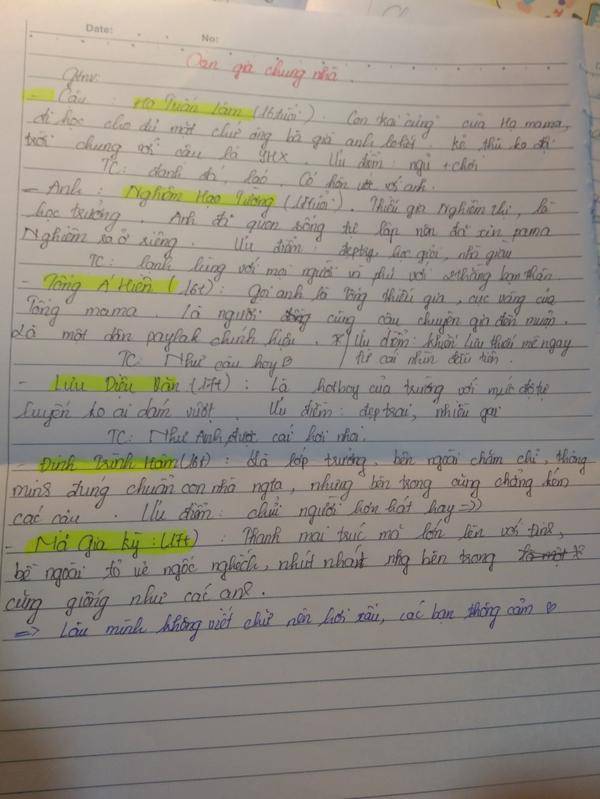 Date: No:
Oan gia chung nhà
Gtnv:
- Cậu : Hạ Tuấn Lâm (16 tuổi). Con trai cưng của Hạ mama,
đi học cho dù một chữ ông bà già anh kẻ thù ko đội
trời chung với cậu là YHX. Ưu điểm: ngủ + chơi
TC: đanh đá, láo. Có hôn ước với anh.
- Anh : Nghiêm Hạo Tường (17tuổi). Thiếu gia Nghiêm thị, là
học trưởng. Anh đã quen sống tự lập nên đã xin pama
Nghiêm ra ở riêng. Ưu điểm: đẹp trai, học giỏi, nhà giàu
TC: lạnh lùng với mọi người vì phũ với thằng bạn thân
- Tống Á Hiên (16t): Gọi anh là Tống thiếu gia, cục vàng của
Tống mama. Là người cùng cậu chuyên gia đến muộn.
Là một dân paylak chính hiệu. * Ưu điểm: khiến Lưu thoái mê ngay
TC: Như cậu hoy từ cái nhìn đầu tiên.
- Lưu Diệu Văn (17t) : Là hotboy của trường với mức độ tự
luyến ko ai dám vượt. Ưu điểm: đẹp trai, nhiều gai
TC: Như Anh được cái hơi nhoi.
- Đinh Trình Hâm (18t) : Là lớp trưởng, bên ngoài chăm chỉ, thông
minh đúng chuẩn con nhà ngta, nhưng bên trong cũng chẳng kém
các cậu. Ưu điểm: chửi người hơn hát hay =))
- Mã Gia Kỳ : (17t) : Thanh mai trúc mã lớn lên với Đinh,
bề ngoài tỏ vẻ ngốc nghếch, nhút nhát nhg bên trong
cũng giống như các anh.
=> Lâu mình không viết chữ nên hơi xấu, các bạn thông cảm